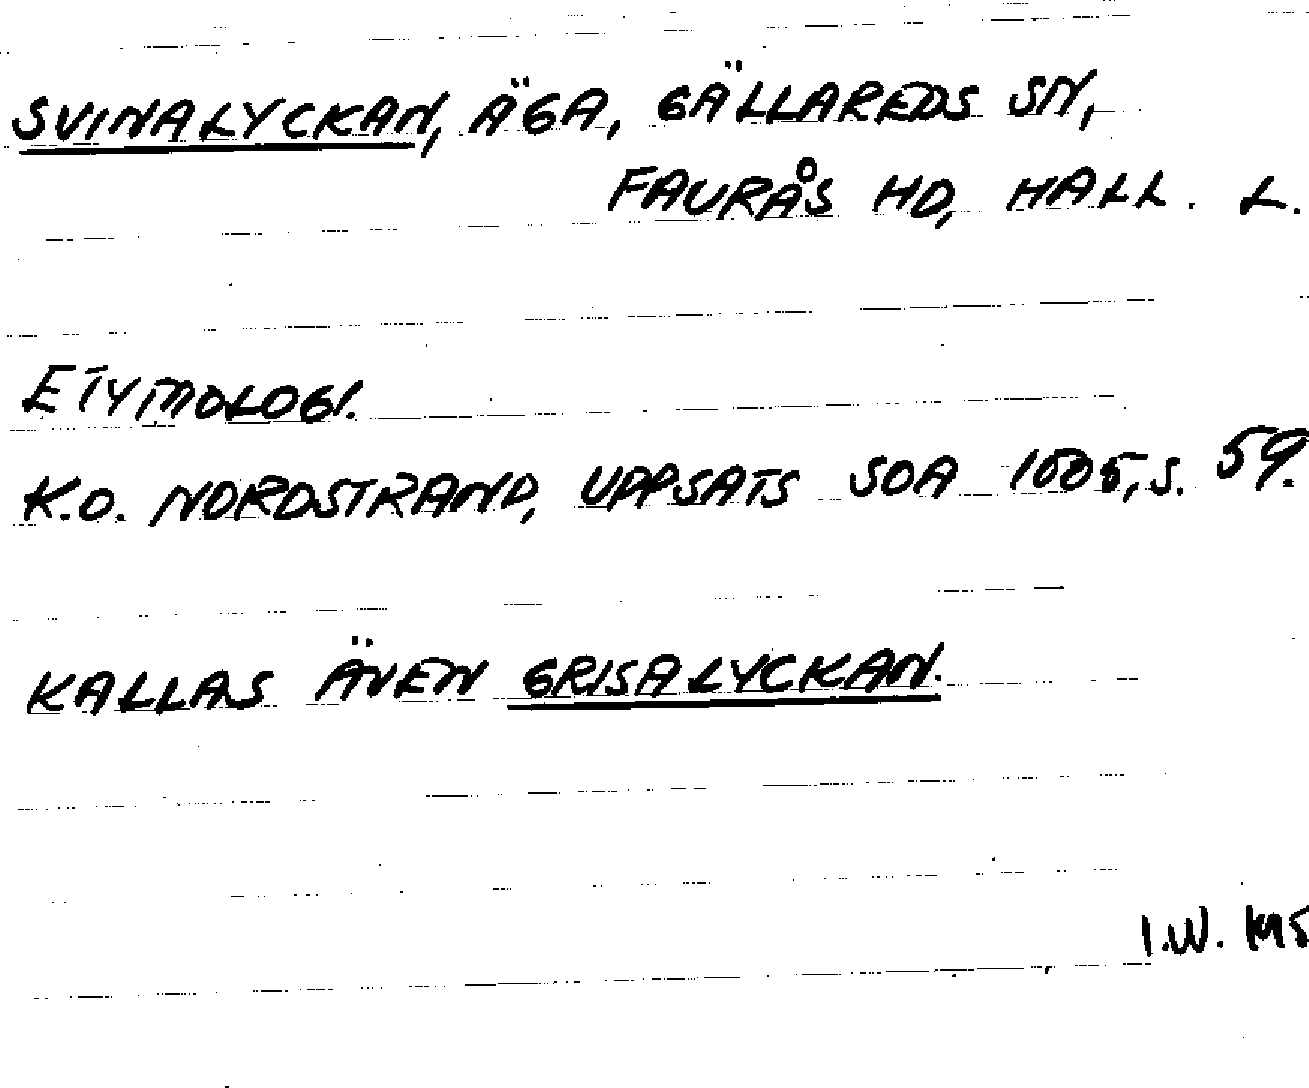 SVINALYCKAN, ÄGA, GÄLLAREDS SN,
FAURÅS HD, HALL. L.
ETYMOLOGI.
K.O. NORDSTRAND, UPPSATS SOA 1505, S. 59.
KALLAS ÄVEN GRISALYCKAN.
I.W.